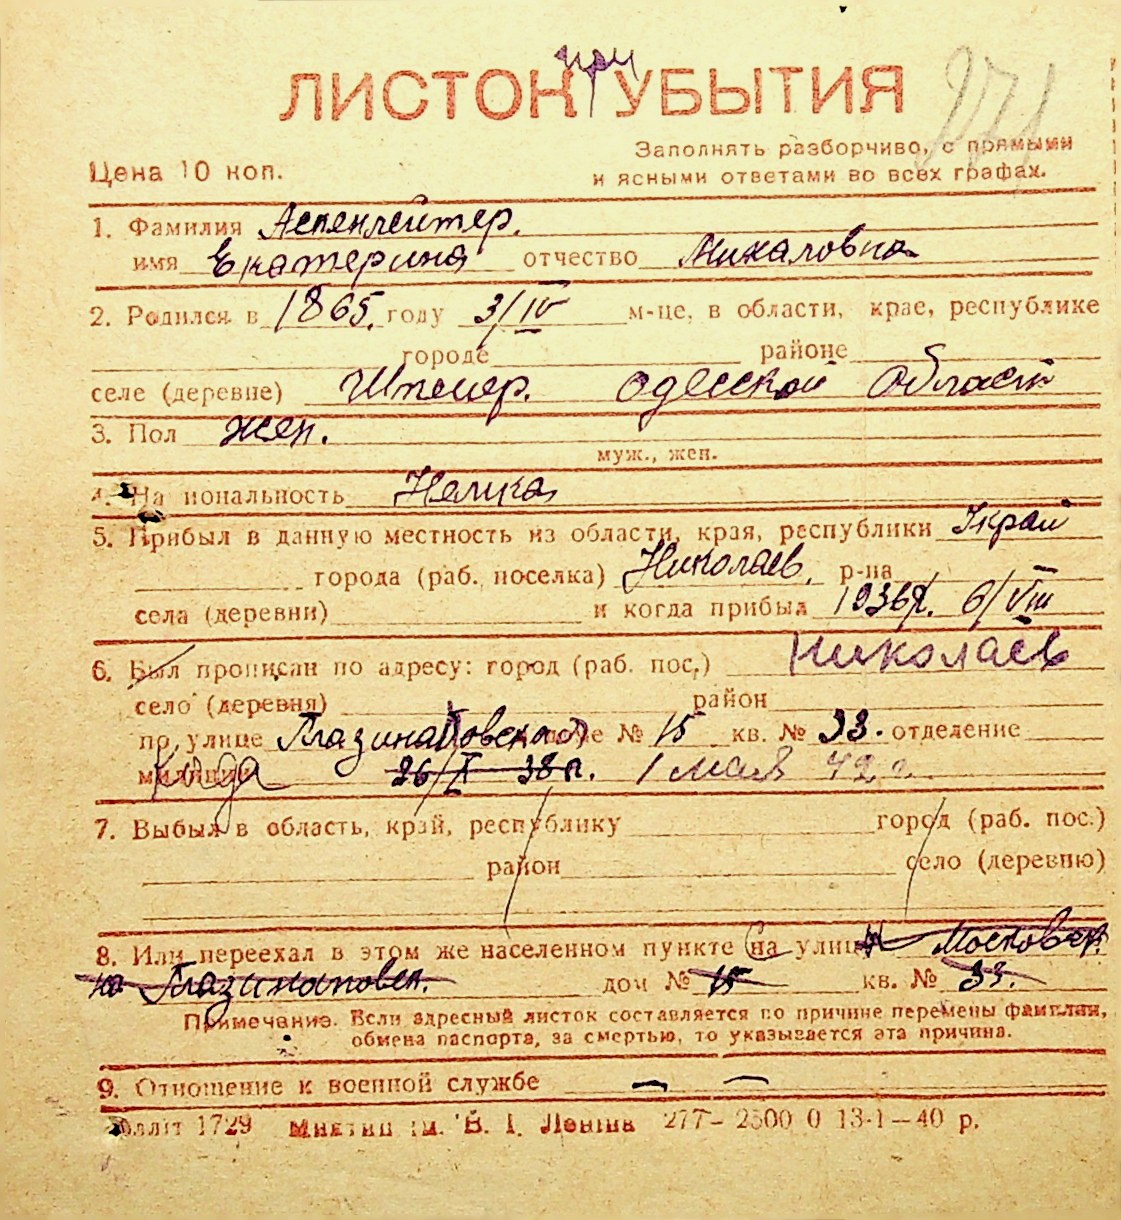 при
ЛИСТОК УБЫТИЯ
271
Заполнять разборчиво, с прямыми
Цена 10 коп.
и ясными ответами во всех графах.
1. Фамилия Аспенлейтер.
имя Екатерина отчество Михаловна
2. Родился в 1865. году 3/IV м-це, в области, крае, республике
городе районе
селе (деревне) Штейер. Одесской Област
3. Пол жен.
муж., жен.
4. На иональность Немка
5. Прибыл в данную местность из области, края, республики Украи
города (раб. поселка) Николаев, р-на
села (деревни) и когда прибыл 1936г. 6/VIII
6. Был прописан по адресу: город (раб. пос.) Николаев
село (деревня) район
по улице № 15 кв. № 33. отделение
милиции Куда 26/X 38г. 1 мая 42 г.
7. Выбыл в область, край, республику город (раб. пос.)
район село (деревню)
8. Или переехал в этом же населенном пункте на улицу Московск.
на дом № 15 кв. № 33.
Примечание. Если адресный листок составляется по причине перемены фамилии,
обмена паспорта, за смертью, то указывается эта причина.
9. Отношение к военной службе — —
1729 ім. В. І. Леніна 277–2500 0 13-1–40 р.